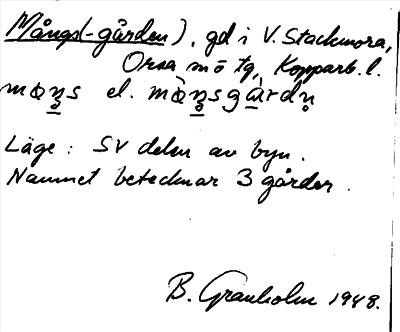 Mångs(-gården), gd i V. Stackmora,
Orsa sn o tg, Kopparb. l.
el.
Läge: SV delen av byn.
Namnet betecknar 3 gårdar.
B. Granholm 1948.